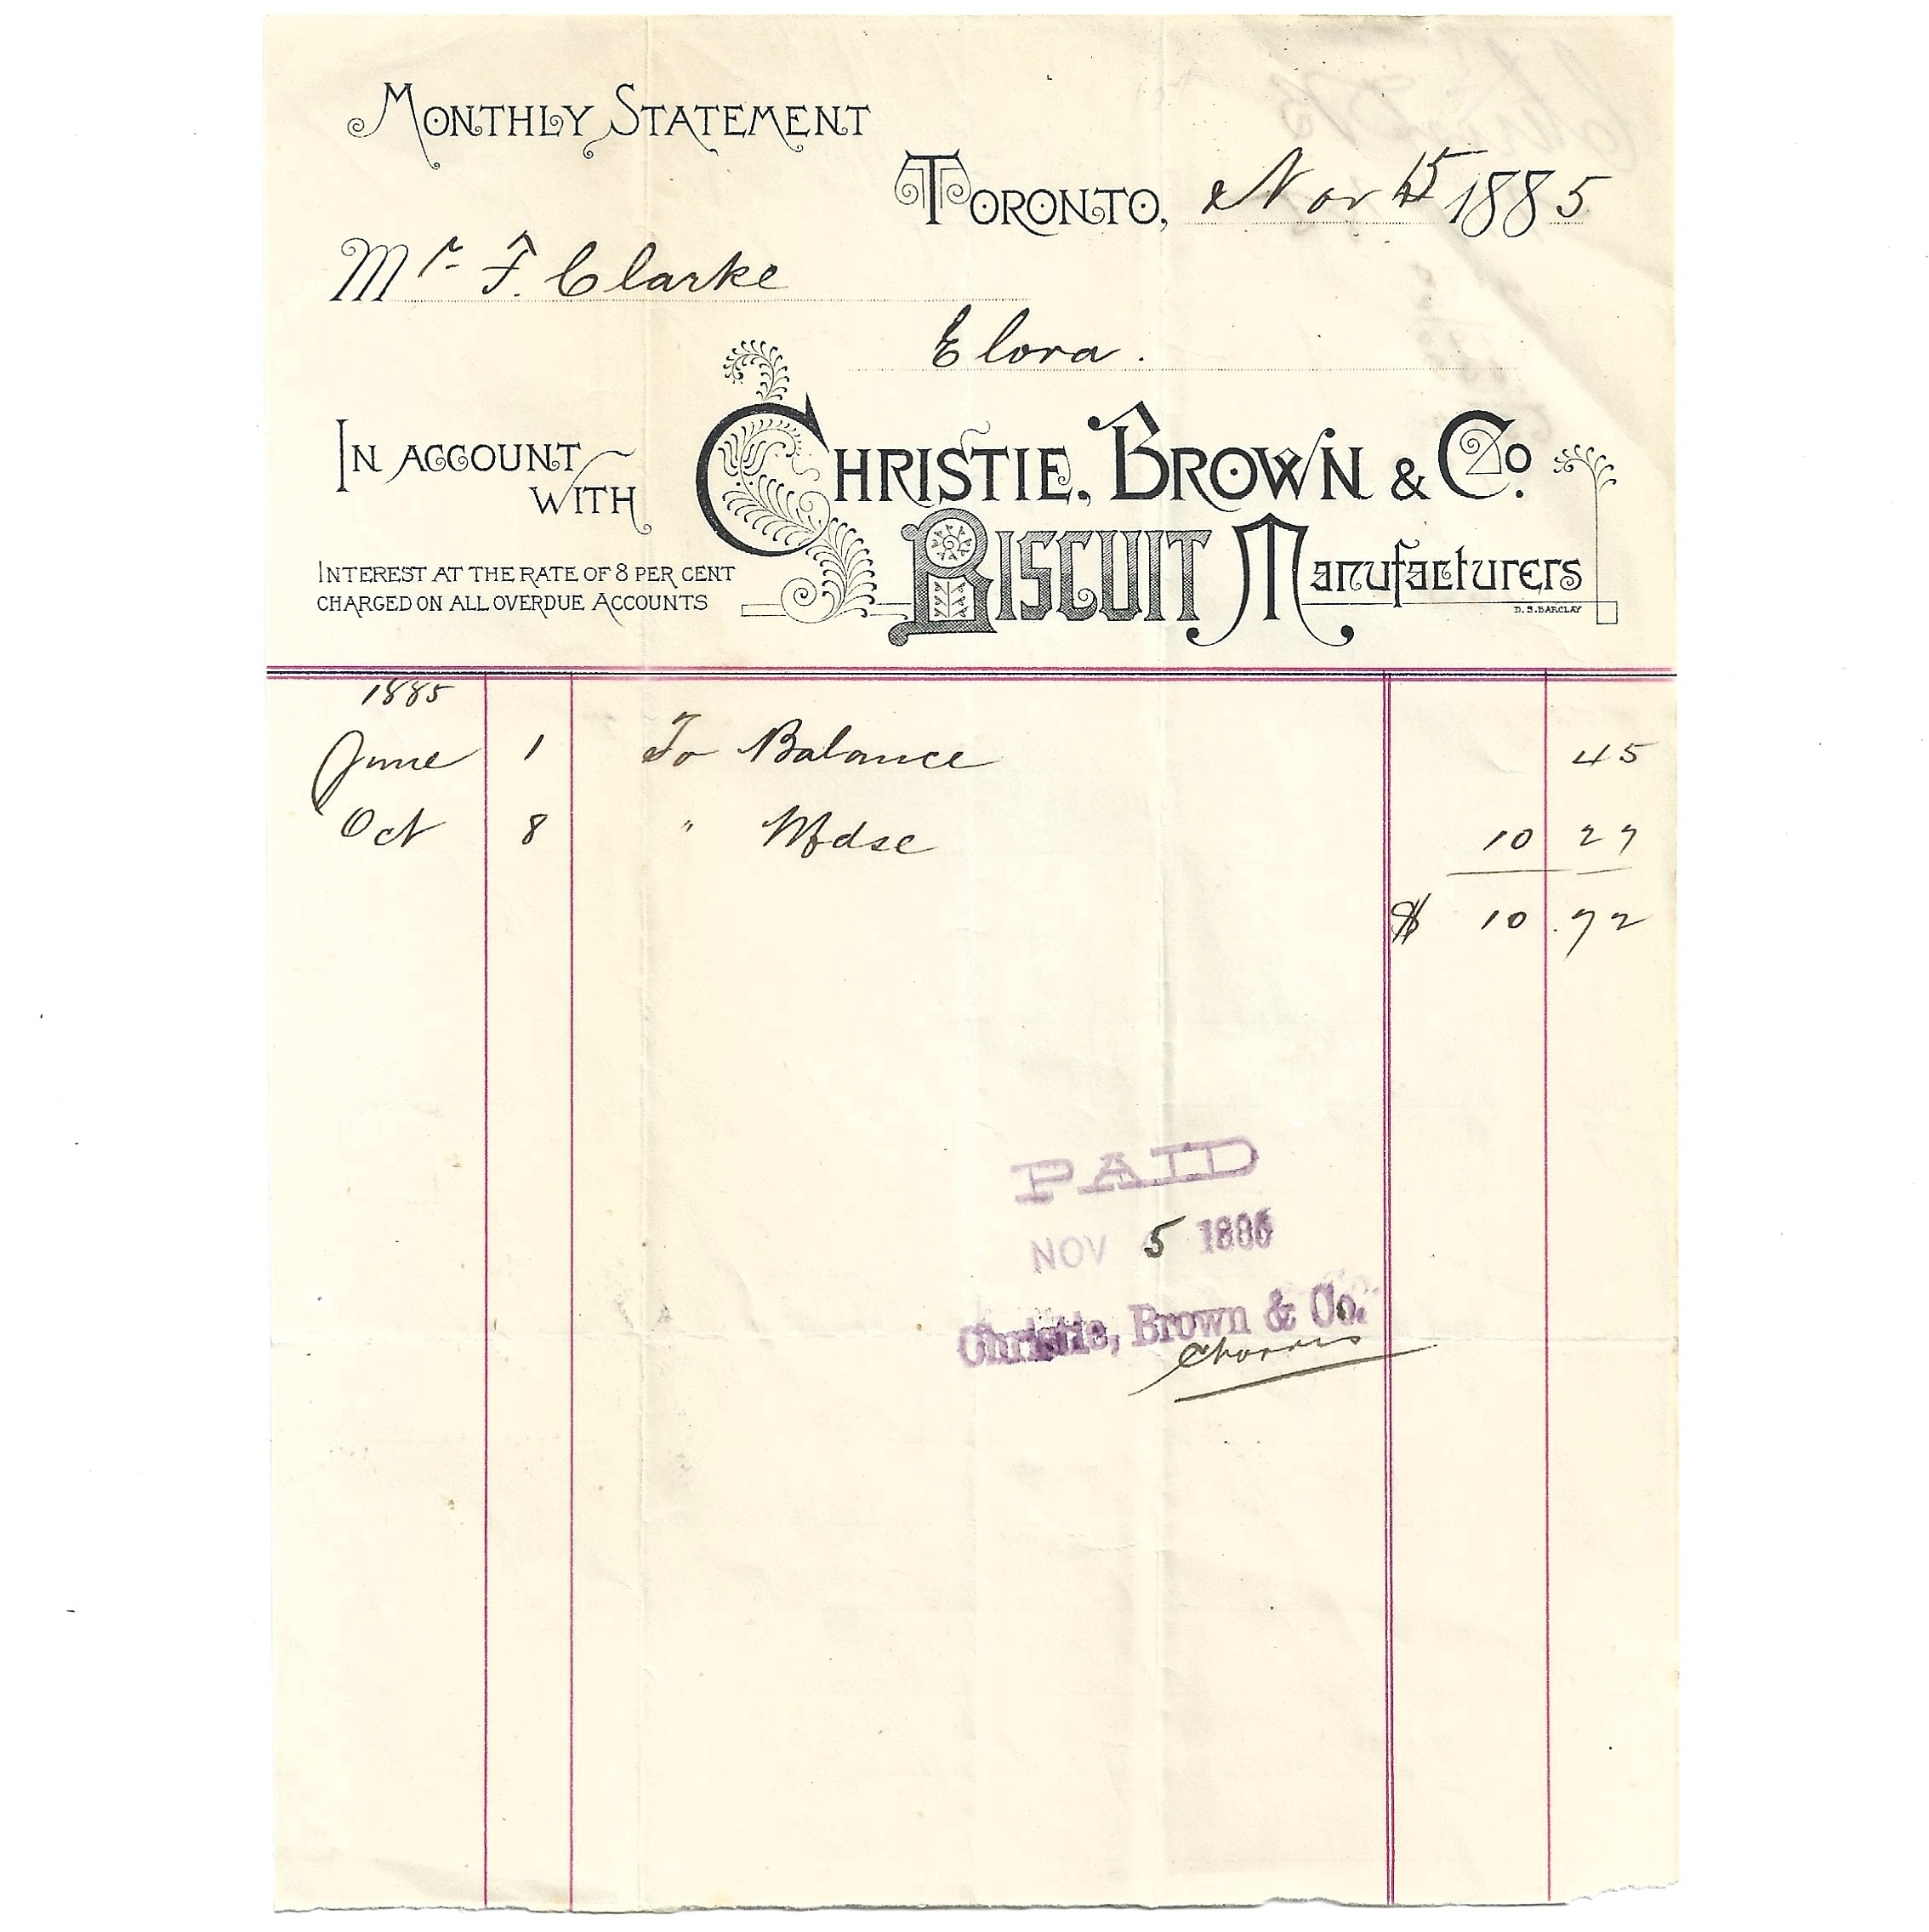 MONTHLY STATEMENT
TORONTO, Nov 5 1885
Mr. F. Clarke
Elora.
IN ACCOUNT WITH
CHRISTIE, BROWN & Co.
BISCUIT MANUFACTURERS
D. S. BARCLAY
INTEREST AT THE RATE OF 8 PER CENT
CHARGED ON ALL OVERDUE ACCOUNTS
1885
June 1 To Balance 45
Oct 8 " Mdse 10 27
$ 10.72
PAID
NOV 5 1885
Christie, Brown & Co.